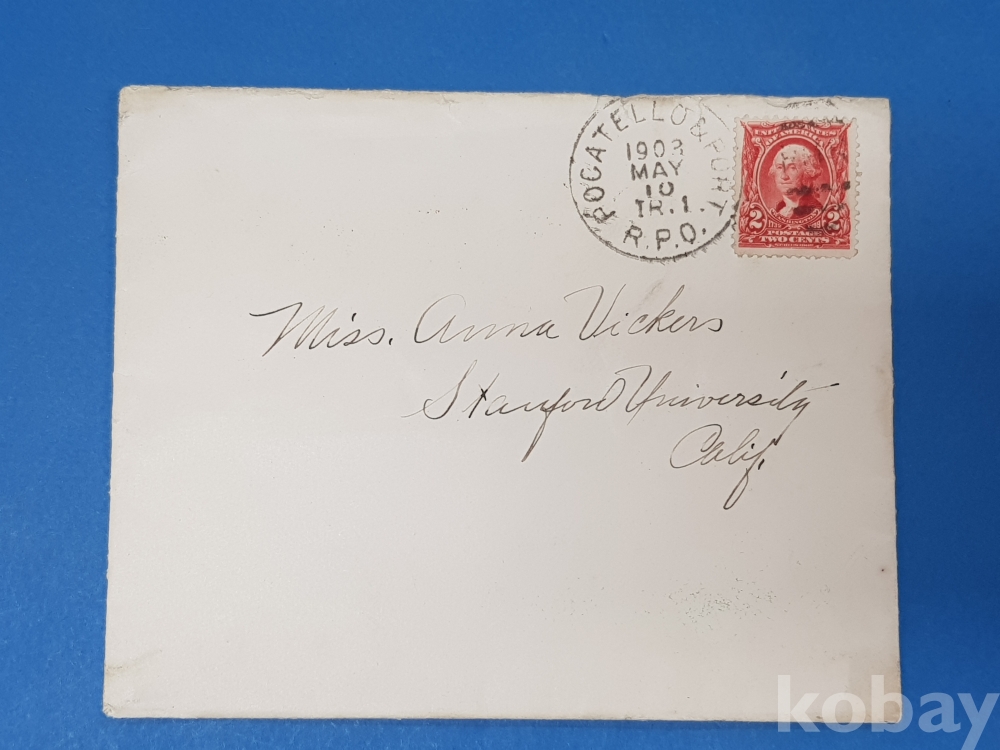 POCATELLO & PORT
1903
MAY
10
TR. 1.
R.P.O.
UNITED STATES
OF AMERICA
WASHINGTON
2 2
POSTAGE
TWO CENTS
Miss. Anna Vickers
Stanford University
Calif.
kobay